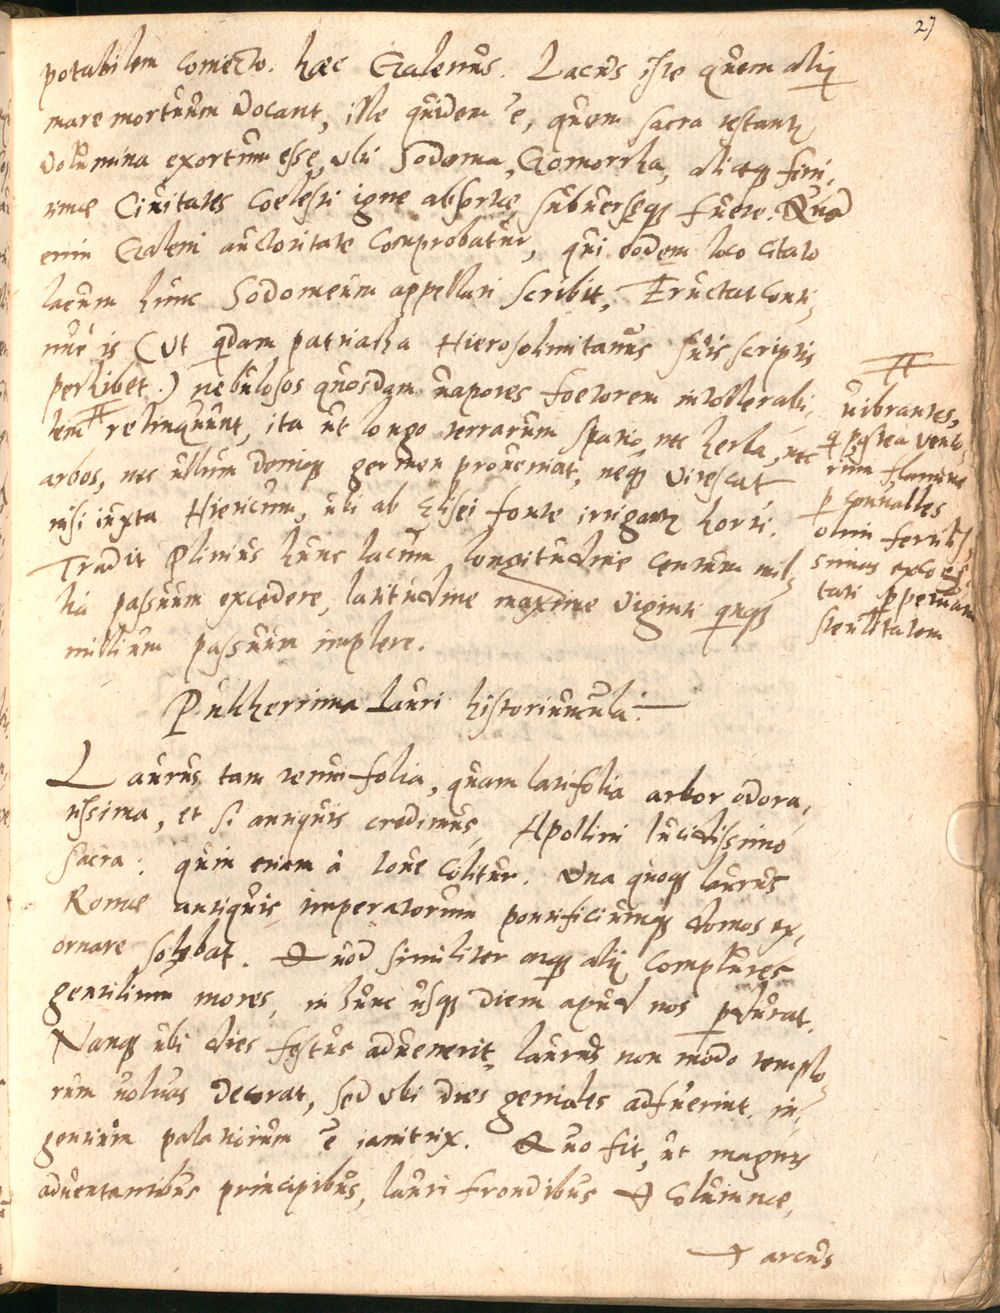 27
potabilem comedo. hæc Galenus. Lacus iste quem alij
mare mortuum vocant, ille quidem ē, quem sacra testantr̃
volumina exortum esse, ubi Sodoma, Gomorrha, aliæq; fini,
timæ Civitates Coelesti igne absortæ, subversæq; fuere. Quod
enim Galeni auctoritate comprobatur, qui eodem loco citato
lacum hunc Sodomeum appellari scribit, Eructat conti,
nue is (ut qdam patriarcha Hierosolimitanus suis scriptis
perhibet.) nebulosos quosdam vapores foetorem intollerabi,
lem # relinquunt, ita ut longo terrarum spatio, nec herba, nec
arbos, nec ullum deniq; germen proveniat, neq; virescat
nisi iuxta Hiericum, ubi ab Elisei fonte irrigantr̃ horti.
Tradit Plinius hunc lacum longitudine centum mil,
lia passuum excedere, latitudine maxime viginti qnq;
millium passuum implere.
#
vibrantes,
q postea vento,
rum flamine
p convalles
olim fertilis,
simas
tati ppetuam
sterilitatem
Pulcherrima Lauri historiuncula.
Laurus tam tenuifolia, quam latifolia arbor odora,
tissima, et si antiquis credimus, Apollini lucidissimo
sacra: quin etiam à Iove colitur. Una quoq; laurus
Romæ antiquis imperatorum pontificiumq; domos ex,
ornare solebat. Quod similiter atq; alij complures
gentilium mores, in hunc usq; diem apud nos pdurat.
Nanq; ubi dies festus advenerit, laurus non modo templo,
rum valvas decorat, sed ubi dies geniales adfuerint, in,
gentium palatiorum ē ianitrix. Quo fit, ut magnis
adventantibus principibus, lauri frondibus & columnæ,
& arcus